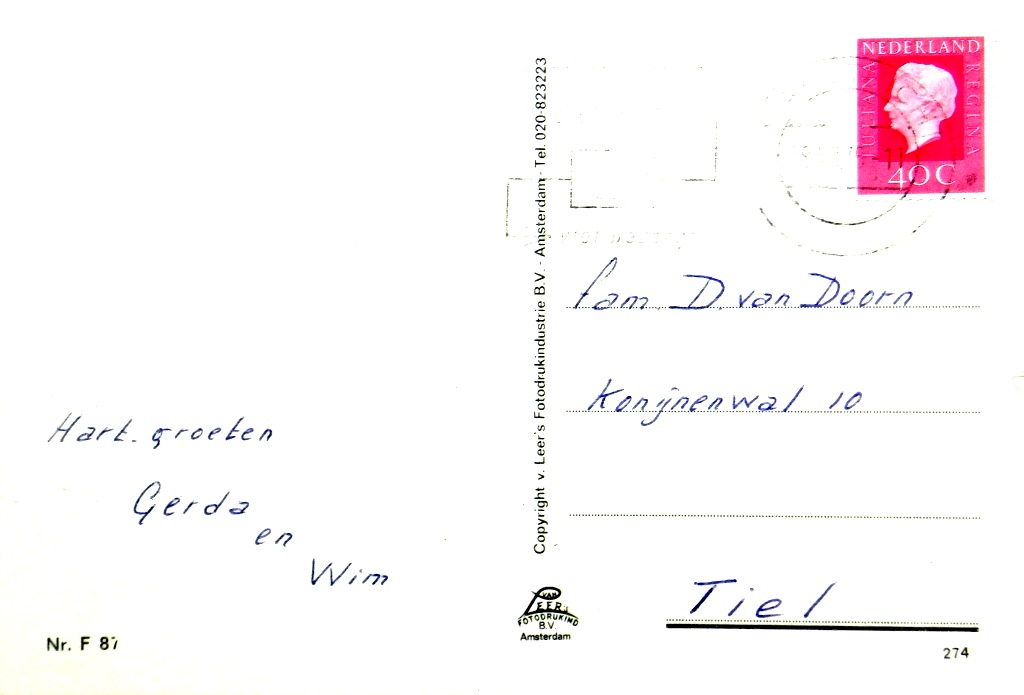 NEDERLAND
JULIANA REGINA
40 C
Copyright v. Leer's Fotodrukindustrie B.V. - Amsterdam - Tel. 020-823223
fam. D. van Doorn
Konijnenwal 10
Tiel
Hart. groeten
Gerda
en
Wim
VAN
LEER's
FOTODRUKIND
B.V.
Amsterdam
Nr. F 87
274